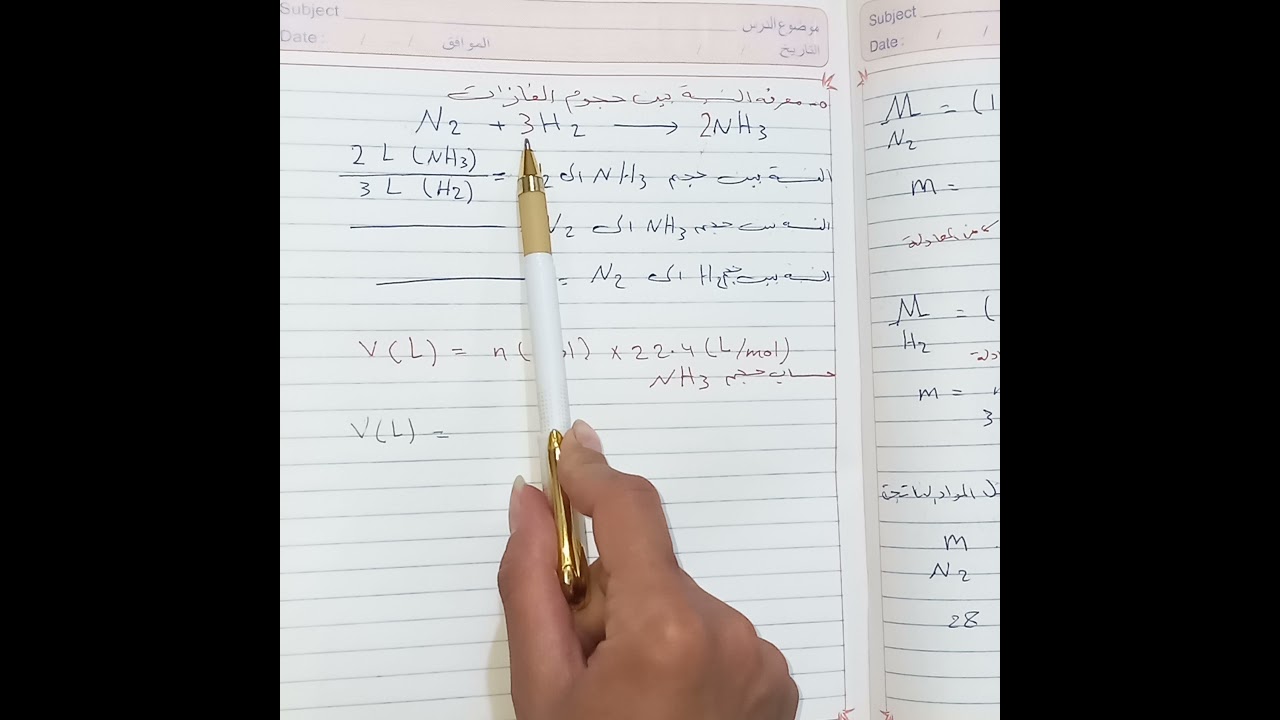 Subject موضوع الدرس
Date : / / الموافق / / التاريخ
٥- معرفة النسبة بين حجوم الغازات
N2 + 3H2 → 2NH3
النسبة بين حجم NH3 الى H2 = 2 L (NH3) / 3 L (H2)
النسبة بين حجم NH3 الى N2
النسبة بين حجم H2 الى N2 =
V(L) = n( ) × 22.4 (L/mol)
حساب حجم NH3
V(L) =
Subject
Date : / /
M = (1
N2
m =
من المعادلة
M = (
H2
m =
3
المواد الناتجة
m
N2
28